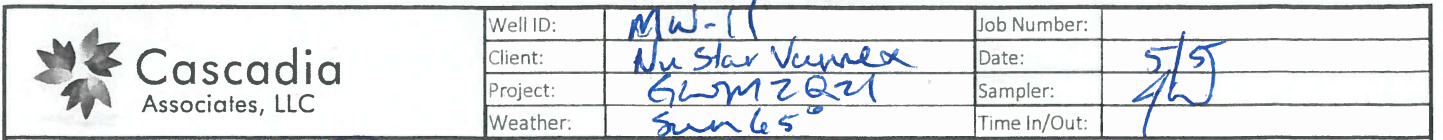 Cascadia
Associates, LLC
Well ID: MW-11 Job Number:
Client: NuStar Vannex Date: 5/5
Project: GWM 2Q21 Sampler:
Weather: Sun 65° Time In/Out: